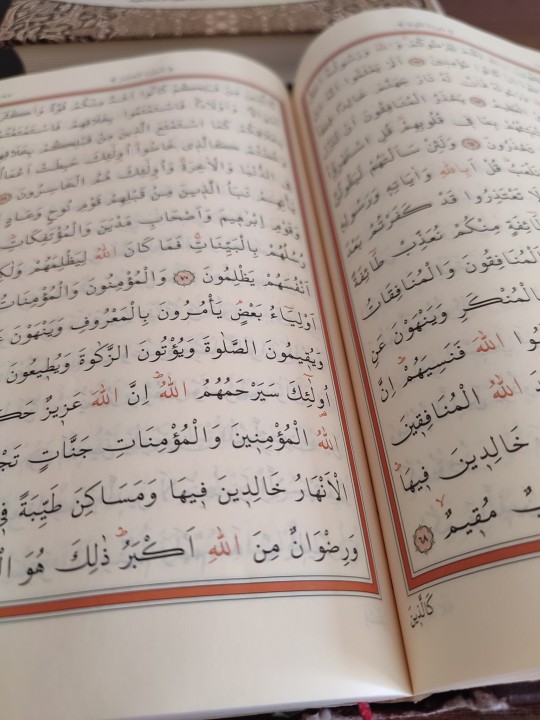 كَانُوا مُؤْمِنِينَ ﴿٦٢﴾ اَلَمْ يَعْلَمُٓوا
نَارَ جَهَنَّمَ خَالِدًا
يَحْذَرُ الْمُنَافِقُونَ اَنْ
بِمَا ف۪ي قُلُوبِهِمْۜ قُلِ اسْتَهْزِؤُ۫ا
تَحْذَرُونَ ﴿٦٤﴾ وَلَئِنْ سَاَلْتَهُمْ لَيَقُولُنَّ
قُلْ اَبِاللّٰهِ وَاٰيَاتِه۪ وَرَسُولِه۪
لَا تَعْتَذِرُوا قَدْ كَفَرْتُمْ بَعْدَ
مِنْكُمْ نُعَذِّبْ طَٓائِفَةً
وَالْمُنَافِقَاتُ
وَيَنْهَوْنَ عَنِ
اللّٰهَ فَنَسِيَهُمْۜ اِنَّ
اللّٰهُ الْمُنَافِق۪ينَ
خَالِد۪ينَ ف۪يهَاۜ
مُق۪يمٌۙ ﴿٦٨﴾
كَالَّذ۪ينَ
مِنْ قَبْلِكُمْ كَانُٓوا اَشَدَّ مِنْكُمْ قُوَّةً وَاَكْثَرَ
وَاَوْلَادًاۜ فَاسْتَمْتَعُوا بِخَلَاقِهِمْ فَاسْتَمْتَعْتُمْ
كَمَا اسْتَمْتَعَ الَّذ۪ينَ مِنْ قَبْلِكُمْ بِخَلَاقِهِمْ
كَالَّذ۪ي خَاضُواۜ اُو۬لٰٓئِكَ حَبِطَتْ اَعْمَالُهُمْ
فِي الدُّنْيَا وَالْاٰخِرَةِۚ وَاُو۬لٰٓئِكَ هُمُ الْخَاسِرُونَ ﴿٦٩﴾
يَأْتِهِمْ نَبَاُ الَّذ۪ينَ مِنْ قَبْلِهِمْ قَوْمِ نُوحٍ وَعَادٍ
وَقَوْمِ اِبْرٰه۪يمَ وَاَصْحَابِ مَدْيَنَ وَالْمُؤْتَفِكَاتِۜ
رُسُلُهُمْ بِالْبَيِّنَاتِۚ فَمَا كَانَ اللّٰهُ لِيَظْلِمَهُمْ
اَنْفُسَهُمْ يَظْلِمُونَ ﴿٧٠﴾ وَالْمُؤْمِنُونَ وَالْمُؤْمِنَاتُ
اَوْلِيَٓاءُ بَعْضٍۢ يَأْمُرُونَ بِالْمَعْرُوفِ وَيَنْهَوْنَ
وَيُق۪يمُونَ الصَّلٰوةَ وَيُؤْتُونَ الزَّكٰوةَ وَيُط۪يعُونَ
اُو۬لٰٓئِكَ سَيَرْحَمُهُمُ اللّٰهُۜ اِنَّ اللّٰهَ عَز۪يزٌ
اللّٰهُ الْمُؤْمِن۪ينَ وَالْمُؤْمِنَاتِ جَنَّاتٍ
الْاَنْهَارُ خَالِد۪ينَ ف۪يهَا وَمَسَاكِنَ طَيِّبَةً
وَرِضْوَانٌ مِنَ اللّٰهِ اَكْبَرُۜ ذٰلِكَ هُوَ